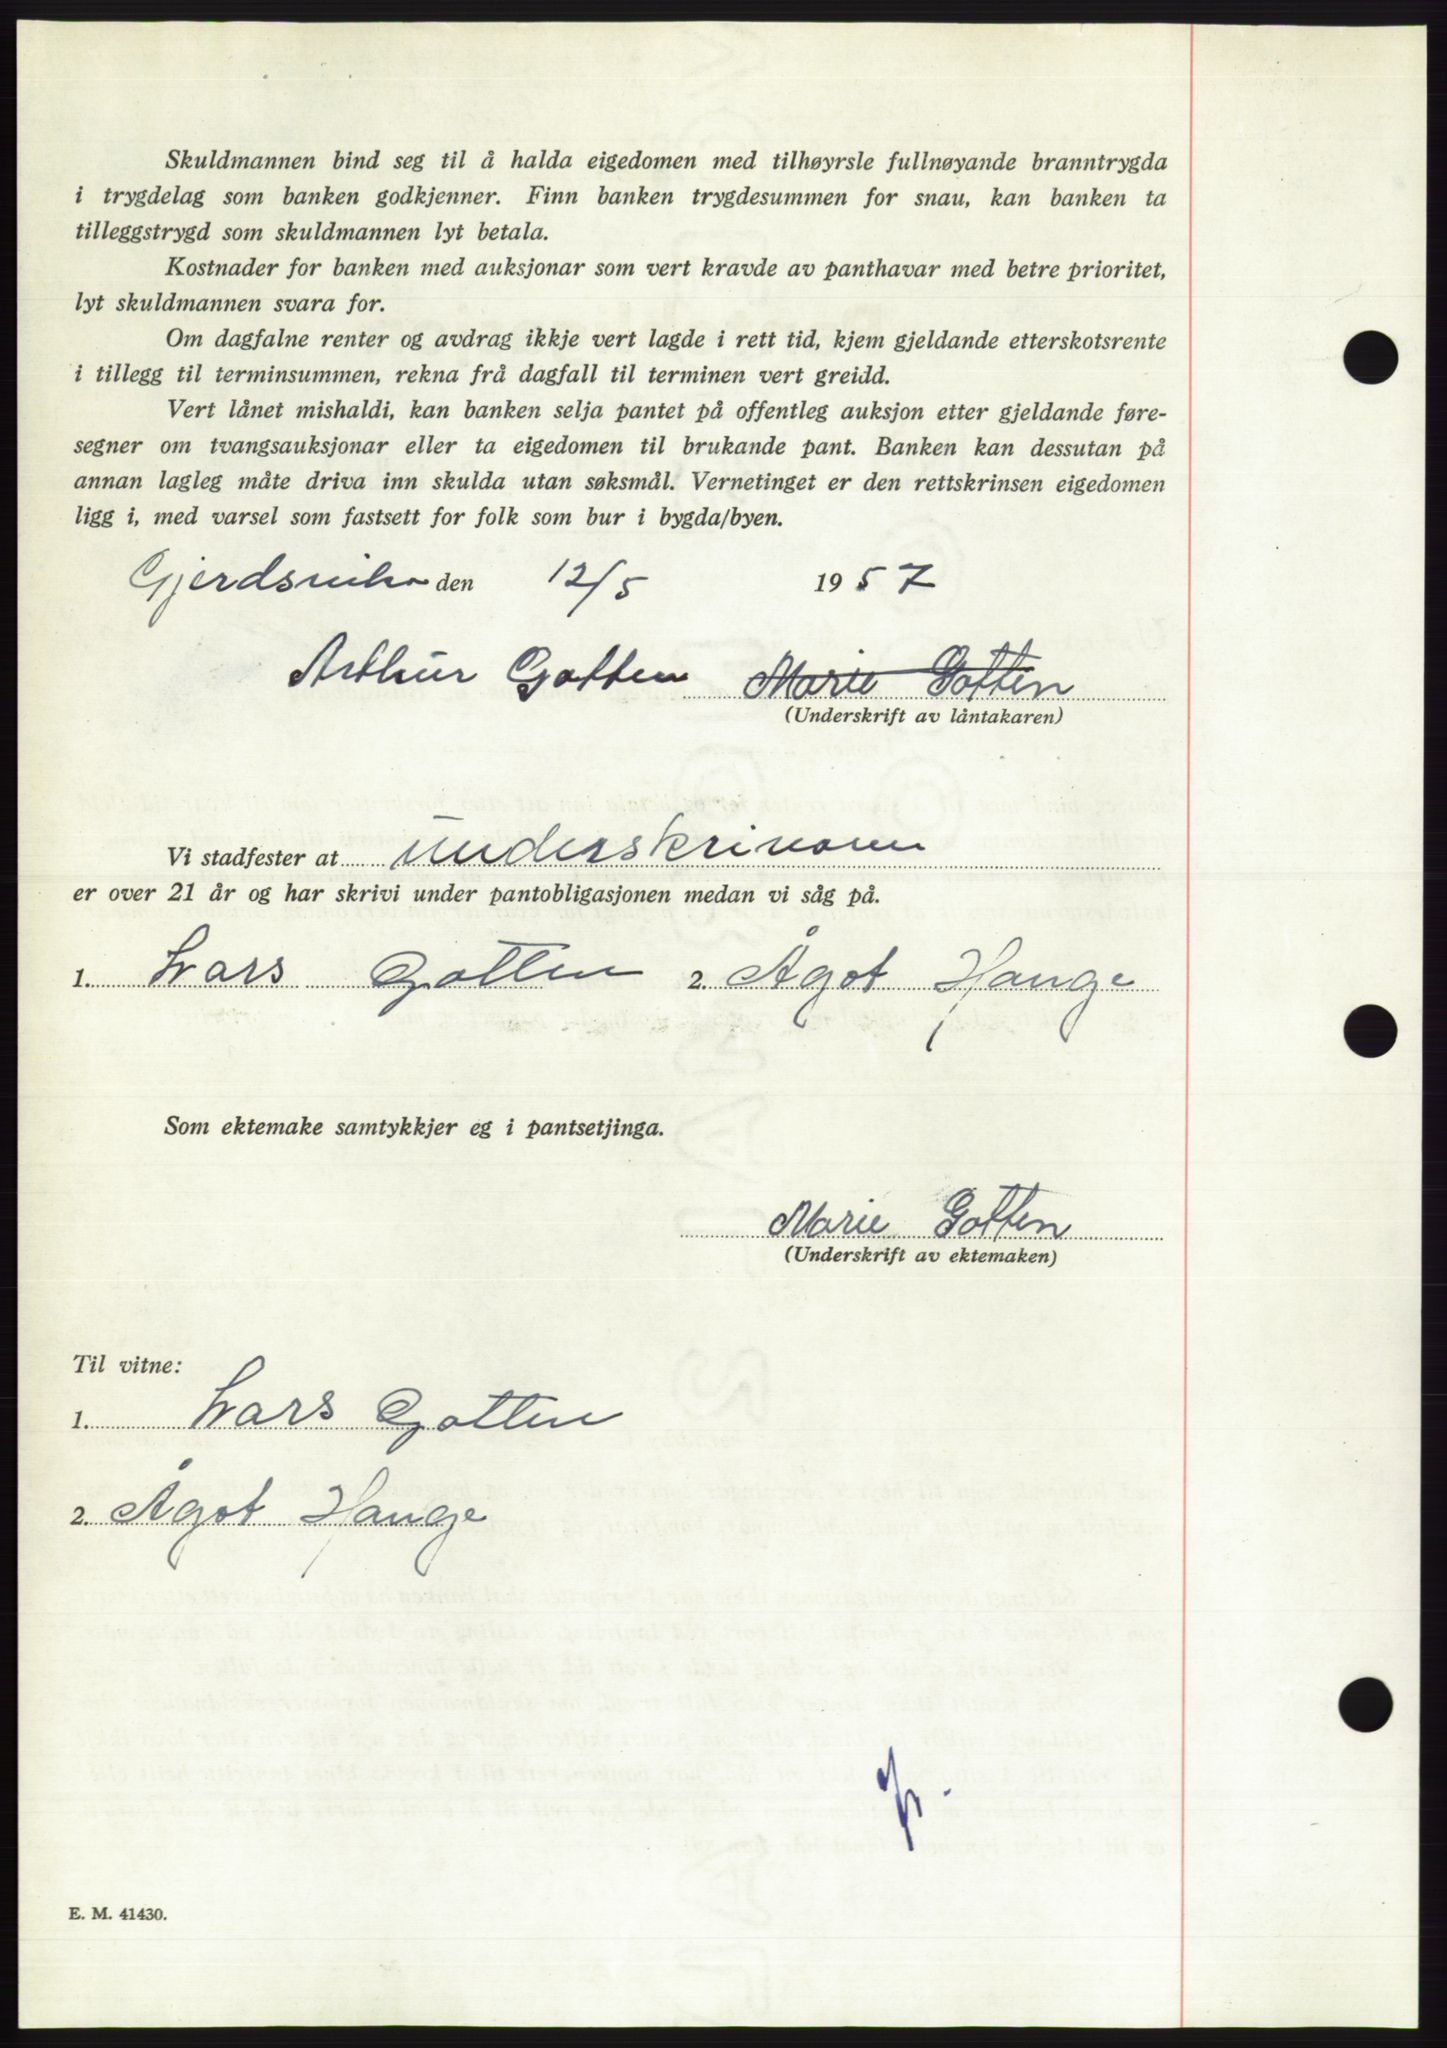 Skuldmannen bind seg til å halda eigedomen med tilhøyrsle fullnøyande branntrygda
i trygdelag som banken godkjenner. Finn banken trygdesummen for snau, kan banken ta
tilleggstrygd som skuldmannen lyt betala.
Kostnader for banken med auksjonar som vert kravde av panthavar med betre prioritet,
lyt skuldmannen svara for.
Om dagfalne renter og avdrag ikkje vert lagde i rett tid, kjem gjeldande etterskotsrente
i tillegg til terminsummen, rekna frå dagfall til terminen vert greidd.
Vert lånet mishaldi, kan banken selja pantet på offentleg auksjon etter gjeldande føre-
segner om tvangsauksjonar eller ta eigedomen til brukande pant. Banken kan dessutan på
annan lagleg måte driva inn skulda utan søksmål. Vernetinget er den rettskrinsen eigedomen
ligg i, med varsel som fastsett for folk som bur i bygda/byen.
den 12/5 1957
Arthur Gotten Marie Gotten
(Underskrift av låntakaren)
Vi stadfester at
er over 21 år og har skrivi under pantobligasjonen medan vi såg på.
1. Lars Gotten 2. Ågot Hauge
Som ektemake samtykkjer eg i pantsetjinga.
Marie Gotten
(Underskrift av ektemaken)
Til vitne:
1. Lars Gotten
2. Ågot Hauge
E. M. 41430.